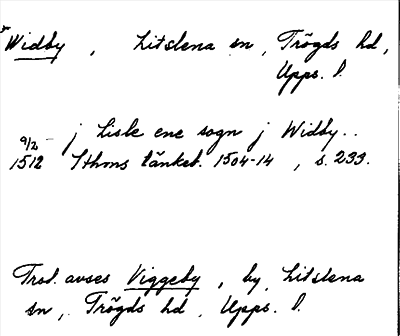 Widby, Litslena sn, Trögds hd,
Upps. l.
9/2 - j Lisle ene sogn j Widby..
1512 Sthms tänkeb. 1504-14, s. 233.
Trol. avses Viggeby, by, Litslena
sn, Trögds hd, Upps. l.